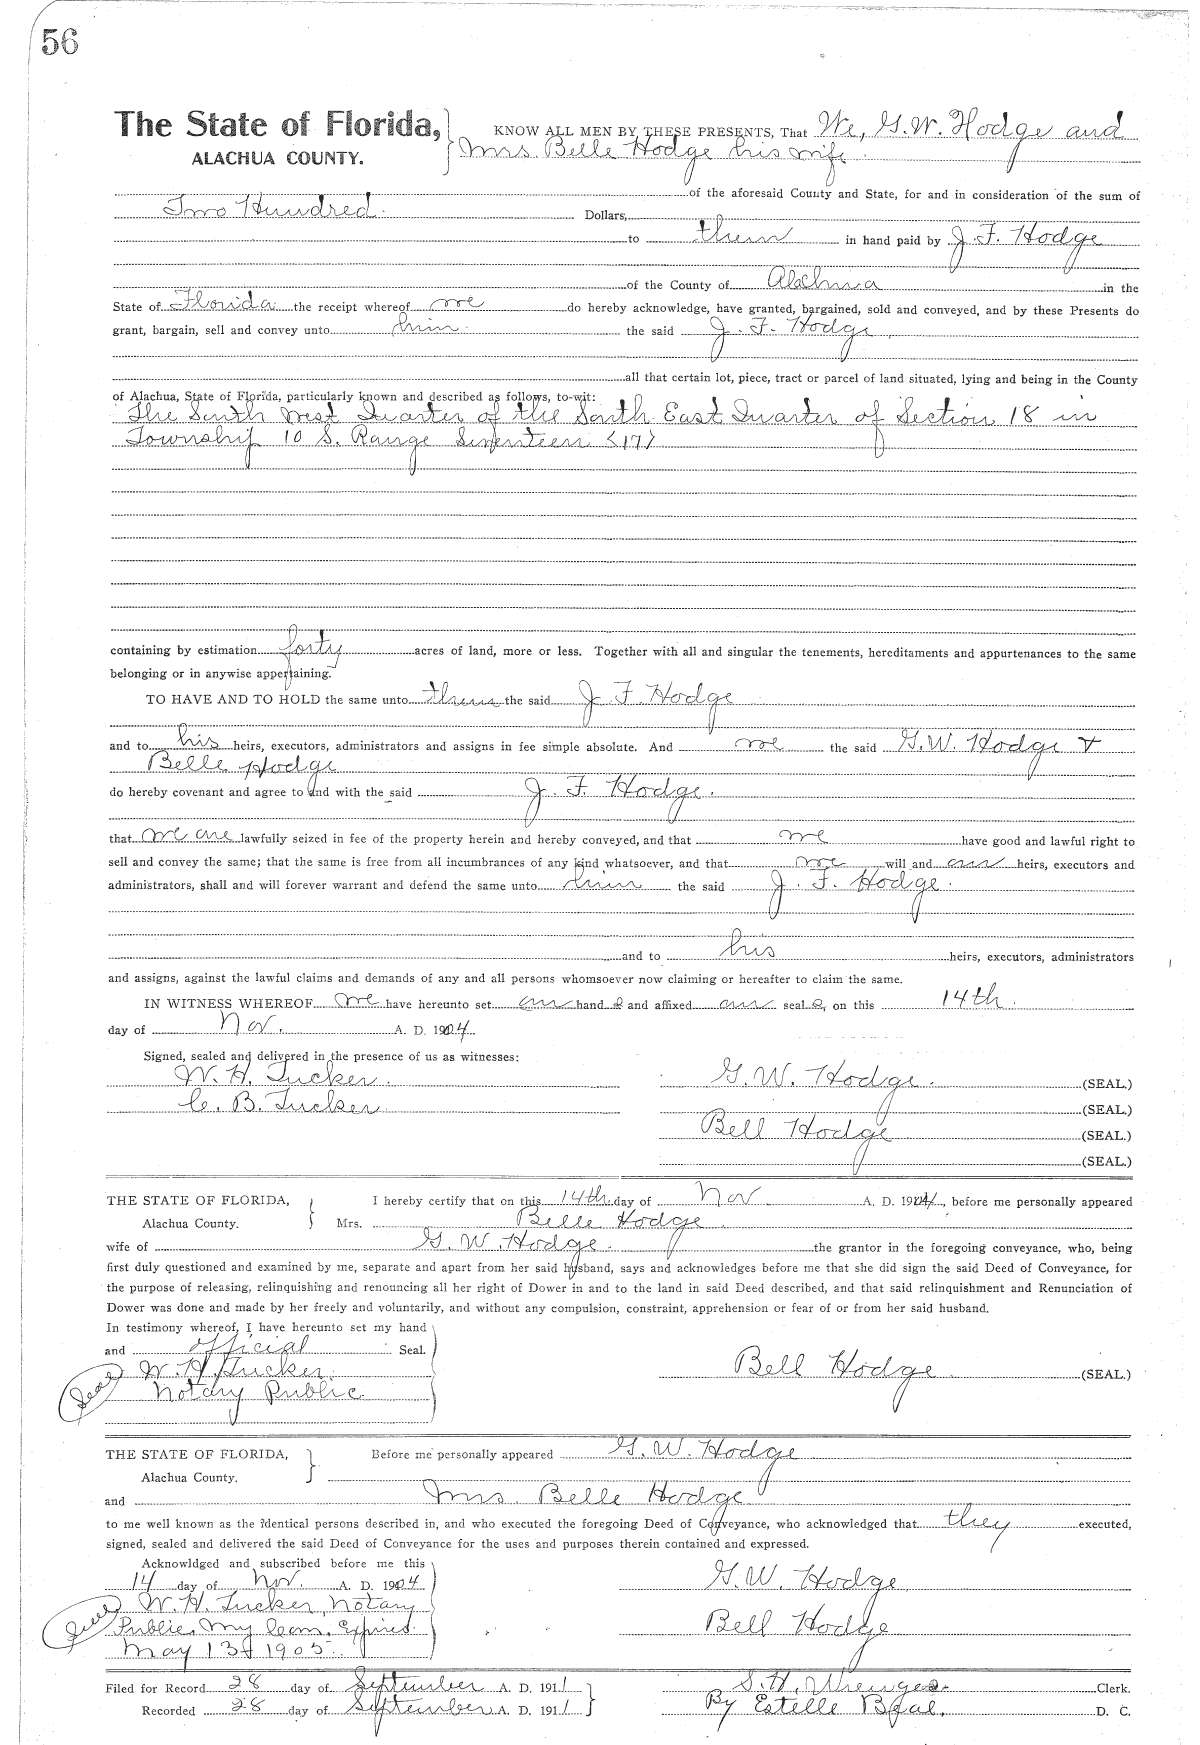 56
The State of Florida, KNOW ALL MEN BY THESE PRESENTS, That We, G.W. Hodge and
ALACHUA COUNTY. Mrs. Belle Hodge his wife.
of the aforesaid County and State, for and in consideration of the sum of
Two Hundred. Dollars,
to them in hand paid by J. F. Hodge
of the County of Alachua in the
State of Florida the receipt whereof we do hereby acknowledge, have granted, bargained, sold and conveyed, and by these Presents do
grant, bargain, sell and convey unto him. the said J. F. Hodge
all that certain lot, piece, tract or parcel of land situated, lying and being in the County
of Alachua, State of Florida, particularly known and described as follows, to-wit:
The South West Quarter of the South East Quarter of Section 18 in
Township 10 S. Range Seventeen <17>
containing by estimation forty acres of land, more or less. Together with all and singular the tenements, hereditaments and appurtenances to the same
belonging or in anywise appertaining.
TO HAVE AND TO HOLD the same unto them the said J F. Hodge
and to his heirs, executors, administrators and assigns in fee simple absolute. And we the said G.W. Hodge &
Belle Hodge
do hereby covenant and agree to and with the said J. F. Hodge.
that we are lawfully seized in fee of the property herein and hereby conveyed, and that we have good and lawful right to
sell and convey the same; that the same is free from all incumbrances of any kind whatsoever, and that we will and our heirs, executors and
administrators, shall and will forever warrant and defend the same unto him the said J. F. Hodge.
and to his heirs, executors, administrators
and assigns, against the lawful claims and demands of any and all persons whomsoever now claiming or hereafter to claim the same.
IN WITNESS WHEREOF we have hereunto set our hand s and affixed our seal s, on this 14th.
day of Nov. A. D. 1904.
Signed, sealed and delivered in the presence of us as witnesses:
W. H. Tucker. G.W. Hodge. (SEAL.)
C. B. Tucker (SEAL.)
Bell Hodge (SEAL.)
(SEAL.)
THE STATE OF FLORIDA, I hereby certify that on this 14th day of Nov A. D. 1904, before me personally appeared
Alachua County. Mrs. Belle Hodge.
wife of G. W. Hodge. the grantor in the foregoing conveyance, who, being
first duly questioned and examined by me, separate and apart from her said husband, says and acknowledges before me that she did sign the said Deed of Conveyance, for
the purpose of releasing, relinquishing and renouncing all her right of Dower in and to the land in said Deed described, and that said relinquishment and Renunciation of
Dower was done and made by her freely and voluntarily, and without any compulsion, constraint, apprehension or fear of or from her said husband.
In testimony whereof, I have hereunto set my hand
and official Seal.
Seal W. H. Tucker. Bell Hodge (SEAL.)
Notary Public.
THE STATE OF FLORIDA, Before me personally appeared G. W. Hodge
Alachua County.
and Mrs. Belle Hodge
to me well known as the identical persons described in, and who executed the foregoing Deed of Conveyance, who acknowledged that they executed,
signed, sealed and delivered the said Deed of Conveyance for the uses and purposes therein contained and expressed.
Acknowldged and subscribed before me this
14 day of Nov. A. D. 1904 G.W. Hodge
Seal W. H. Tucker, Notary
Public, My Com. Expires Bell Hodge
May 13th 1905.
Filed for Record 28 day of September A. D. 1911 S. H. Clerk.
Recorded 28 day of September A. D. 1911 By Estelle Beal. D. C.